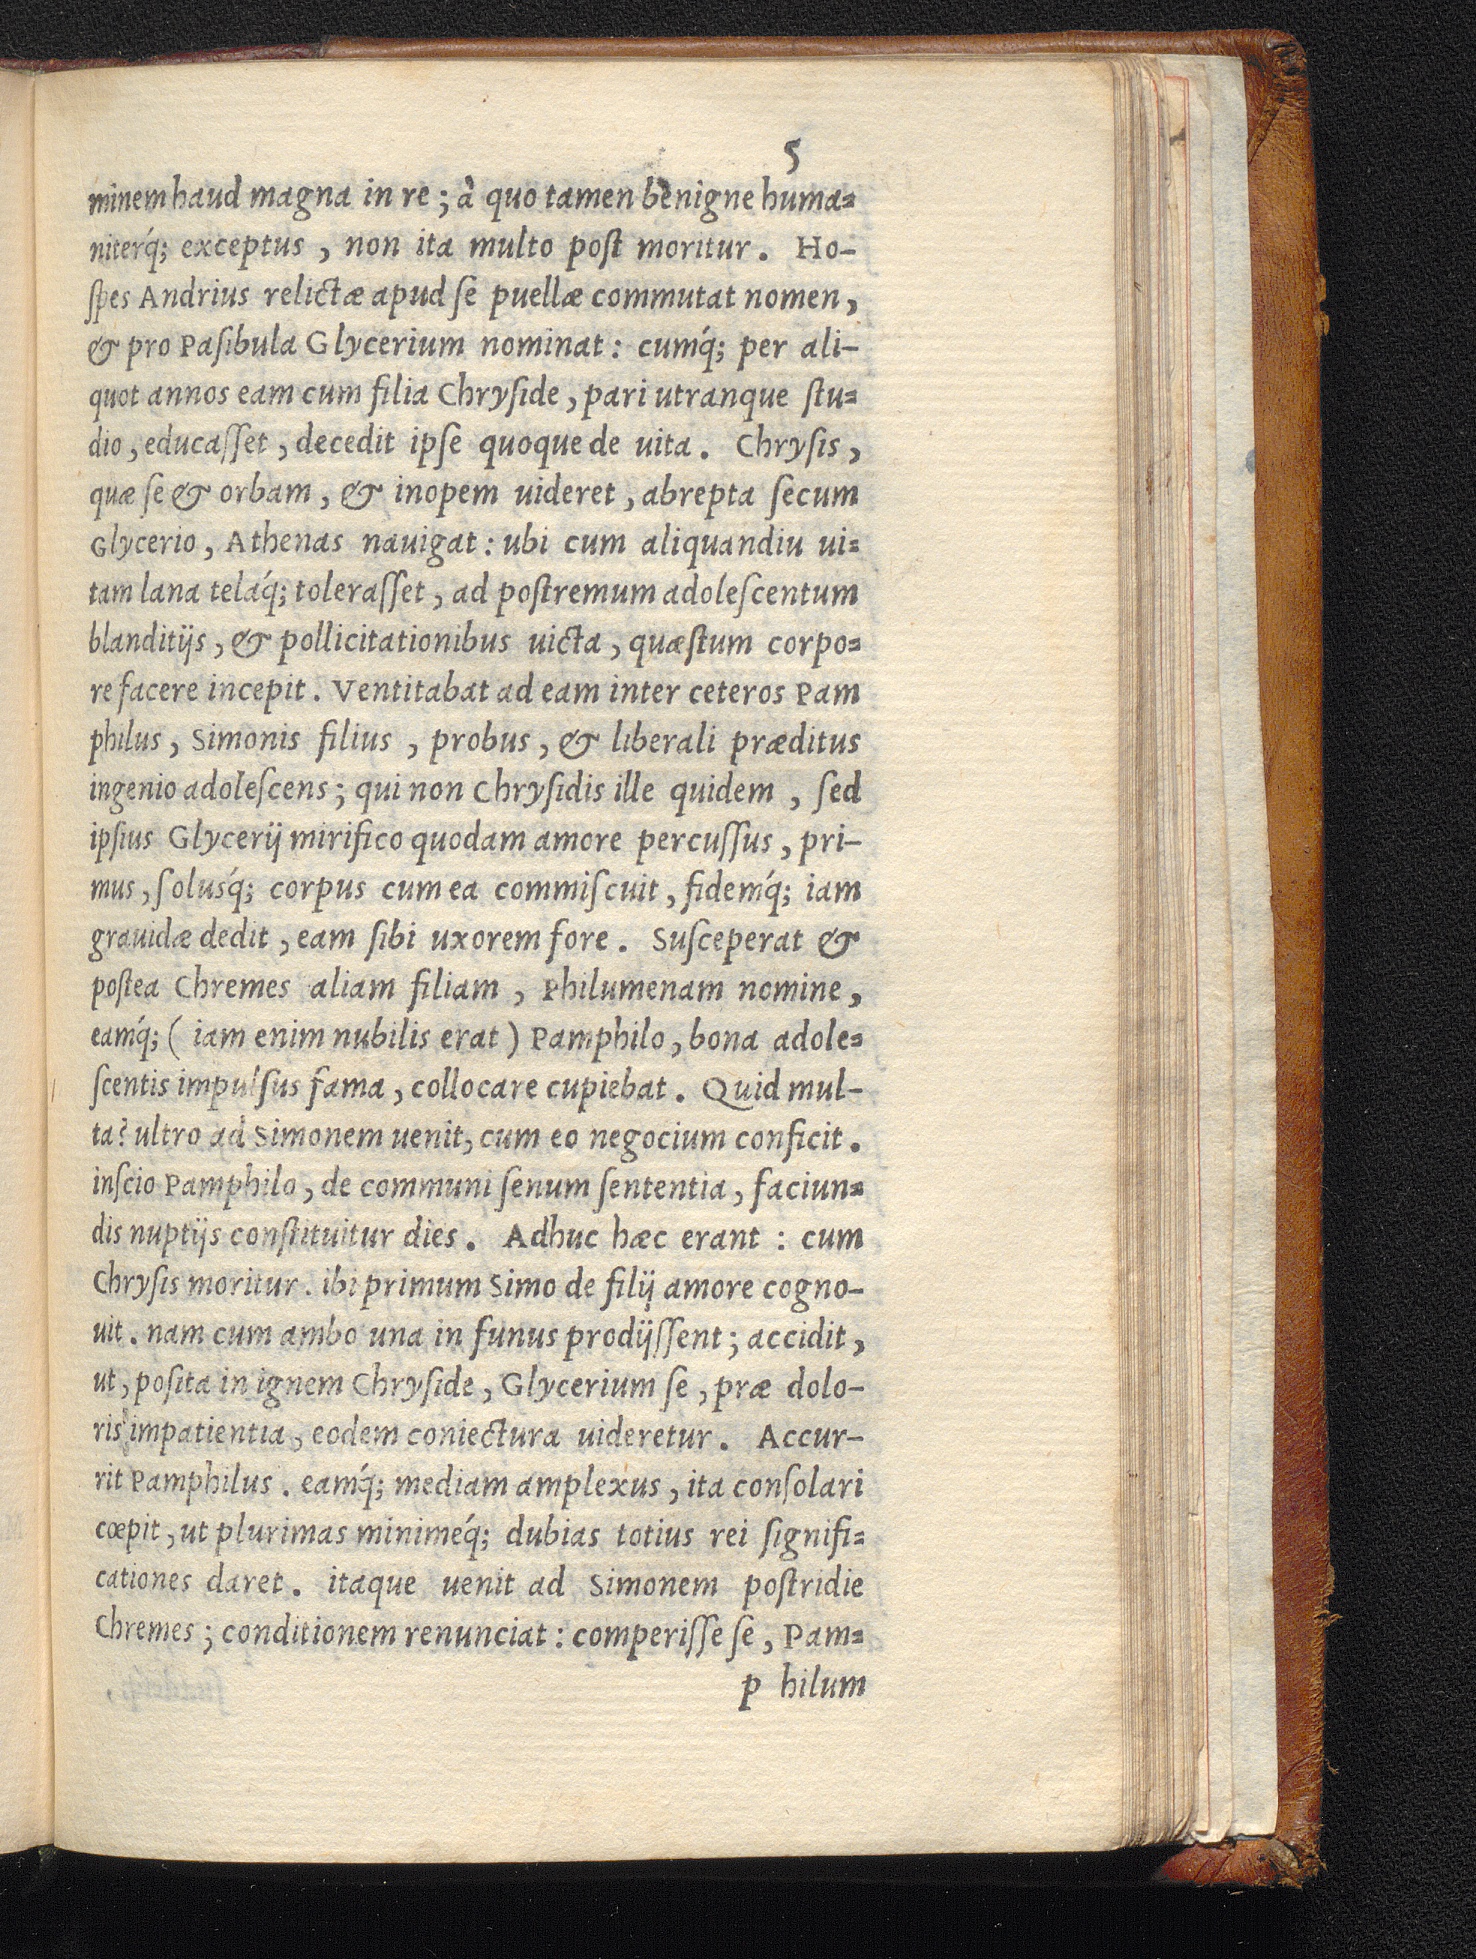 5
minem haud magna in re; à quo tamen benigne huma=
niterq́; exceptus, non ita multo poſt moritur. Ho-
ſpes Andrius relictæ apud ſe puellæ commutat nomen,
& pro Paſibula Glycerium nominat: cumq́; per ali-
quot annos eam cum filia Chryſide, pari utranque ſtu=
dio, educaſſet, decedit ipſe quoque de uita. Chryſis,
quæ ſe & orbam, & inopem uideret, abrepta ſecum
Glycerio, Athenas nauigat: ubi cum aliquandiu ui=
tam lana teláq́; toleraſſet, ad poſtremum adoleſcentum
blanditijs, & pollicitationibus uicta, quæſtum corpo=
re facere incepit. Ventitabat ad eam inter ceteros Pam
philus, Simonis filius, probus, & liberali præditus
ingenio adoleſcens; qui non Chryſidis ille quidem, ſed
ipſius Glycerij mirifico quodam amore percuſſus, pri-
mus, ſolusq́; corpus cum ea commiſcuit, fidemq́; iam
grauidæ dedit, eam ſibi uxorem fore. Suſceperat &
poſtea Chremes aliam filiam, Philumenam nomine,
eamq́; (iam enim nubilis erat) Pamphilo, bona adole=
ſcentis impulſus fama, collocare cupiebat. Quid mul-
ta? ultro ad Simonem uenit, cum eo negocium conficit.
inſcio Pamphilo, de communi ſenum ſententia, faciun=
dis nuptijs conſtituitur dies. Adhuc hæc erant: cum
Chryſis moritur. ibi primum Simo de filij amore cogno-
uit. nam cum ambo una in funus prodijſſent; accidit,
ut, poſita in ignem Chryſide, Glycerium ſe, præ dolo-
ris impatientia, eodem coniectura uideretur. Accur-
rit Pamphilus. eamq́; mediam amplexus, ita conſolari
cœpit, ut plurimas minimeq́; dubias totius rei ſignifi=
cationes daret. itaque uenit ad Simonem poſtridie
Chremes; conditionem renunciat: comperiſſe ſe, Pam=
p hilum